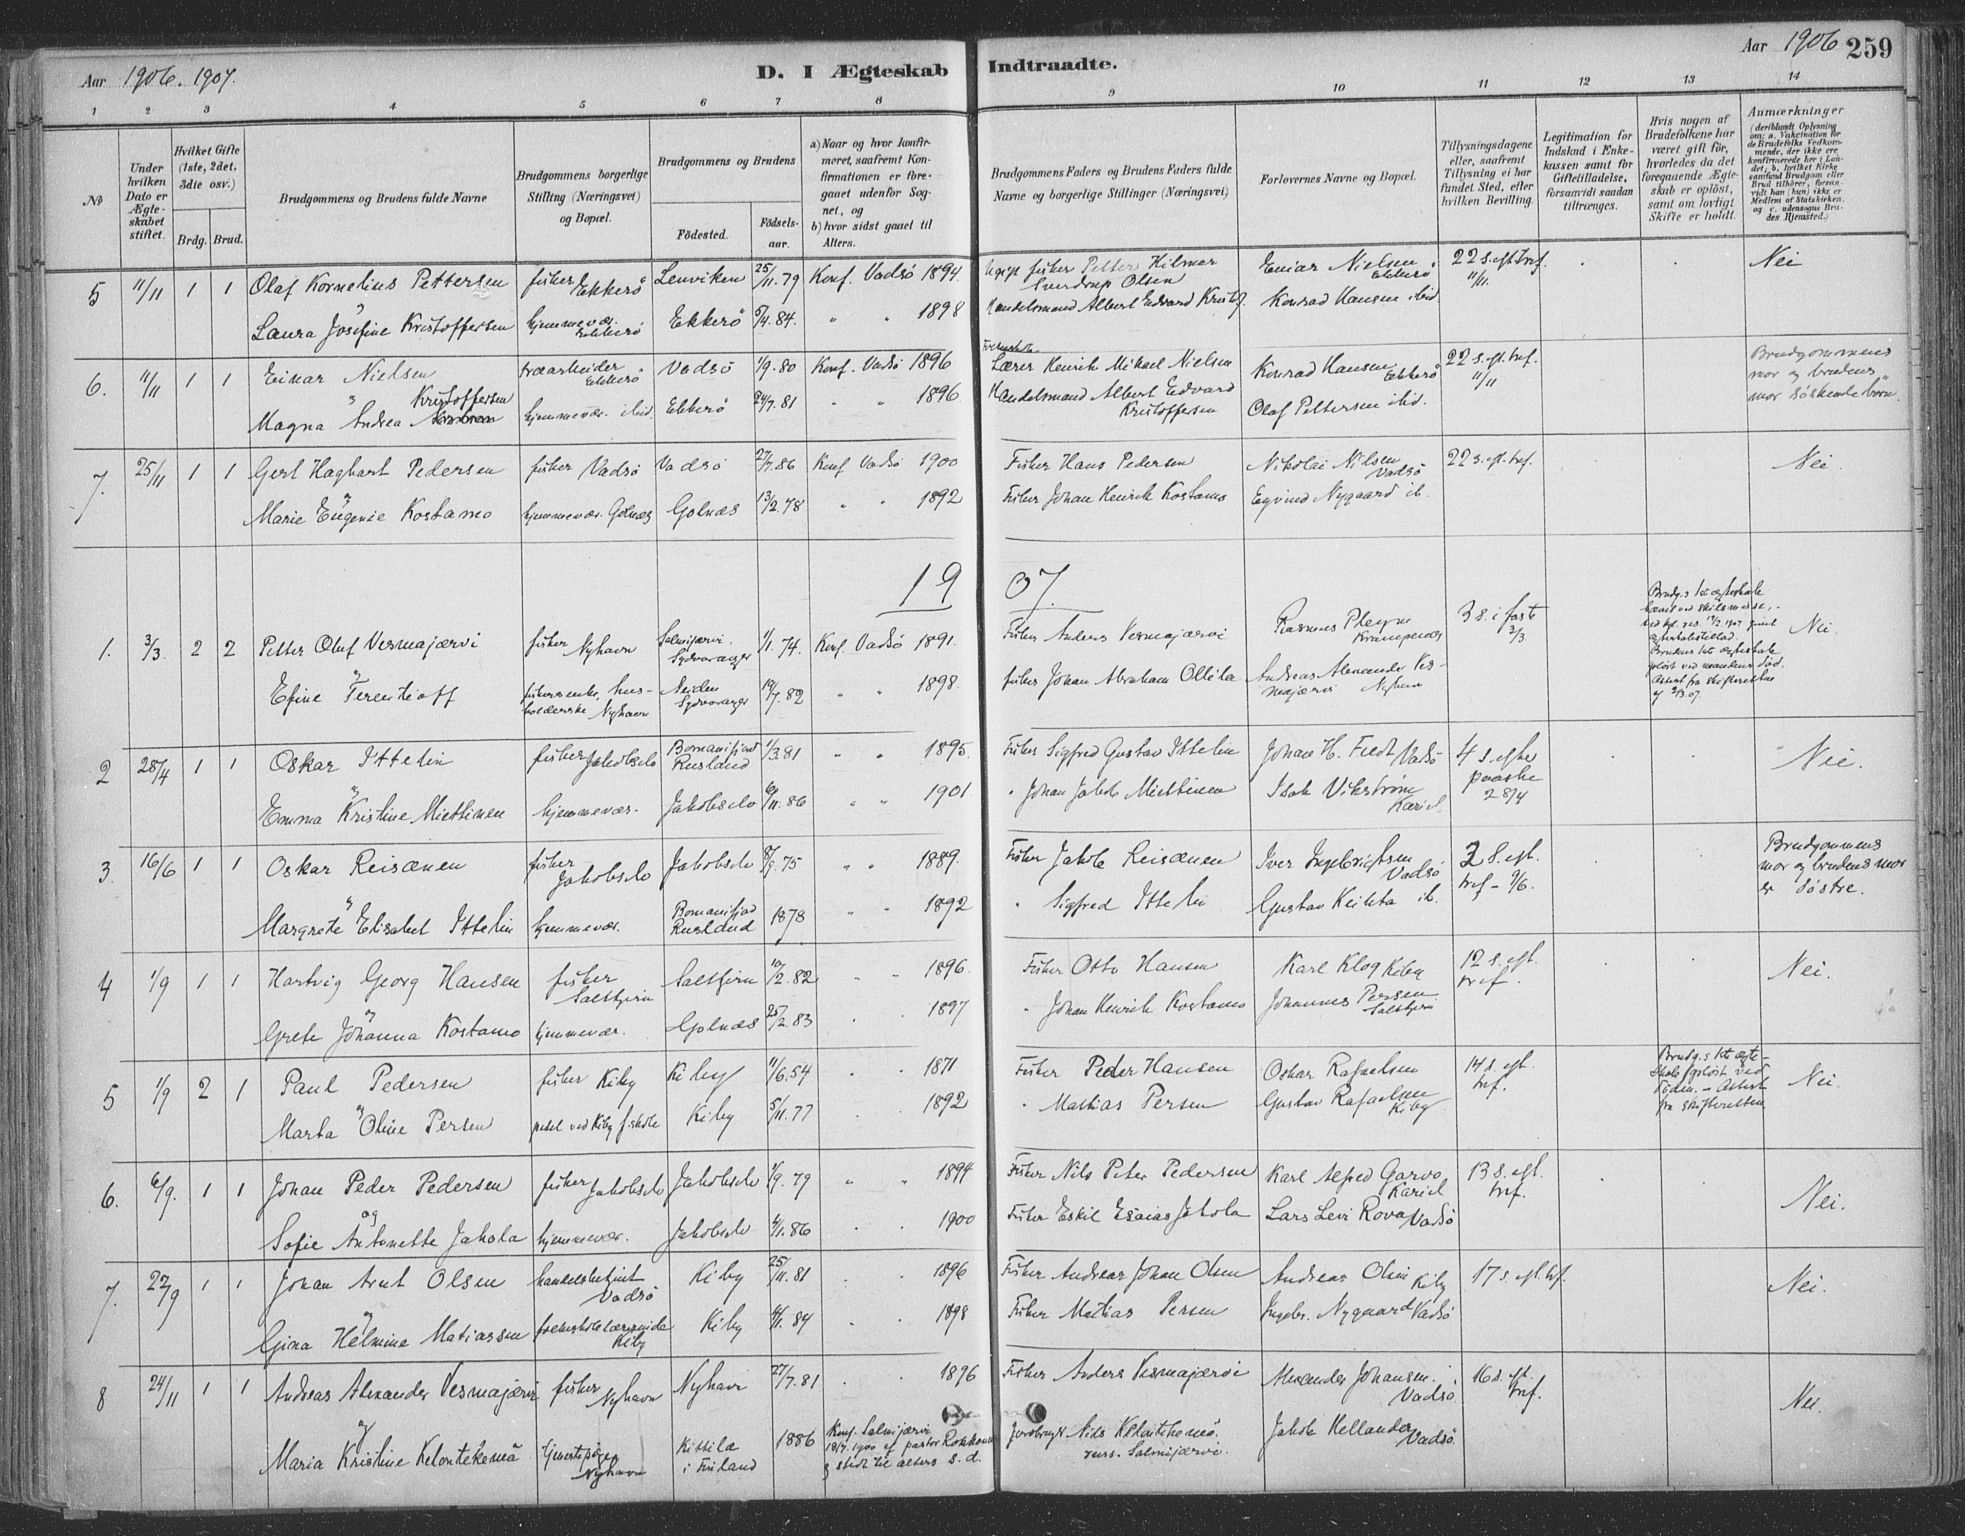 Aar 1906. 1907.
D. I Ægteskab Indtraadte.
Aar 1906 259
1 2 3 4 5 6 7 8 9 10 11 12 13 14
No
Under hvilken Dato er Ægteskabet stiftet.
Hvilket Gifte (1ste, 2det, 3die osv.)
Brdg. Brud.
Brudgommens og Brudens fulde Navne
Brudgommens borgerlige Stilling (Næringsvei) og Bopæl.
Brudgommens og Brudens
Födested. Födselsaar.
a) Naar og hvor konfirmeret, saafremt Konfirmationen er foregaaet udenfor Sognet, og
b) hvor sidst gaaet til Alters.
Brudgommens Faders og Brudens Faders fulde Navne og borgerlige Stillinger (Næringsvei)
Forlovernes Navne og Bopæl.
Tillysningsdagene eller, saafremt Tillysning ei har fundet Sted, efter hvilken Bevilling.
Legitimation for Indskud i Enkekassen samt for Giftetilladelse, forsaavidt saadan tiltrænges.
Hvis nogen af Brudefolkene har været gift för, hvorledes da det foregaaende Ægteskab er oplöst, samt om lovligt Skifte er holdt.
Anmærkninger
(deriblandt Oplysning om: a. Vakcination för de Brudefolks Vedkommende, der ikke ere konfirmerede her i Landet, b. hvilket Kirkesamfund Brudgom eller Brud tilhörer, forsaavidt han (hun) ikke er Medlem af Statskirken, og c. udensogns Brudes Hjemsted.)
5 11/11 1 1 Olaf Kornelius Pettersen fisker Ekkerö Lenviken 25/11.79 Konf. Vadsö 1894. Ugift fisker Petter Hilmar Sverdrup Olsen Einar Nielsen Ekkerö 22 s. eft. tref. 11/11. Nei
og
Laura Josefine Kristoffersen hjemmevær. Ekkerö Ekkerö 5/4.84. " " 1898 Handelsmand Albert Edvard Kristof. Konrad Hansen ibid
6. 11/11 1 1 Einar Nielsen træarbeider Ekkerö Vadsö 1/9.80 Konf. Vadsö 1896 Lærer Henrik Mikael Nielsen Konrad Hansen Ekkerö 22 s. eft. tref. 11/11 Brudgommens mor og brudens mor söskendebörn.
Magna Andrea Kristoffersen hjemmevær. ibid. Ekkerö 24/7.81 " " 1896 Handelsmand Albert Edvard Kristoffersen Olaf Pettersen ibid.
7. 25/11 1 1 Gerl Hagbart Pedersen fisker Vadsö Vadsö 27/7.86 Konf. Vadsö 1900 Fisker Hans Pedersen Nikolai Nilsen Vadsö 22 s. eft. tref. Nei
og
Marie Eugenie Kostamo hjemmevær. Golnæs Golnæs 13/2.78 " " 1892 Fisker Johan Henrik Kostamo Eyvind Nygaard ib.
1907.
1. 3/3. 2 2 Petter Oluf Vesmajærvi fisker Nyhavn Salmijærvi. Sydvaranger 1/1.74. Konf. Vadsö 1891. Fisker Anders Vesmajærvi Rasmus Krampenæs 3 s. i faste 3/3 Brudg.s 1ste ægteskab hævet ved skilsmisse, Brudens 1ste ægteskab oplöst ved mandens död. Attest fra skifteretten af 2/3.07. Nei.
og
Efine Terentioff fiskerenke, husholderske Nyhavn Neiden Sydvaranger 19/7.82 " " 1898. fisker Johan Abraham Ollila Andreas Alexander Vesmajærvi Nyhavn
2 28/4 1 1 Oskar Ittelin fisker Jakobselv Bomanifjord Rusland 1/3 81 " " 1895. Fisker Sigfred Gustav Ittelin Johan H. Fredt Vadsö 4 s. efter paaske 28/4 Nei.
og
Emma Kristine Miettinen hjemmevær. Jakobselv 6/11.86 " " 1901 " Johan Jakob Miettinen Isak Vikström Kariel
3. 16/6 1 1 Oskar Reisænen fisker Jakobselv Jakobselv 8/9.75 " " 1889. Fisker Jakob Reisænen Iver Ingebrigtsen Vadsö 2 s. eft. tref - 9/6. Brudgommens mor og brudens mor er söstre.
og
Margrete Elisabet Ittelin hjemmevær. Bomanifjord Rusland 1878 " " 1892 " Sigfred Ittelin Gustav Keikka ib.
4 1/9 1 1 Hartvig Georg Hansen fisker Saltbjern Saltbjern 10/2.82 " " 1896. Fisker Otto Hansen Karl Klog Kiby 12 s. eft. tref. Nei.
og
Grete Johanna Kostamo hjemmevær. Golnæs 25/2.83 " " 1897 " Johan Henrik Kostamo Johannes Persen Saltbjern
5 1/9 2 1 Paul Pedersen fisker Kiby Kiby 11/6.54 " " 1871 Fisker Peder Hansen Oskar Rafaelsen 14 s. eft. tref. Brudg.s 1ste ægteskab oplöst ved döden. - Attest fra skifteretten Nei.
og
Marta Oline Persen pedel ved Kiby f. skole Kiby 5/11.77 " " 1892 " Mathias Persen Gustav Rafaelsen Kiby
6. 6/9. 1 1 Johan Peder Pedersen fisker Jakobselv Jakobselv 1/9.79 " " 1894 Fisker Nils Peter Pedersen Karl Alfred Garvo Kariel 13 s. eft. tref. Nei.
og
Sofie Antonette Jakola hjemmevær. Jakobselv 4/1.86 " " 1900 Fisker Eskil Esaias Jakola Lars Levi Rova Vadsö
7. 22/9 1 1 Johan Arnt Olsen handelsbetjent Vadsö Kiby 25/11.81 " " 1896 Fisker Andreas Johan Olsen Andreas Olsen Kiby 17 s. eft. tref. Nei.
og
Gina Helmine Matiassen folkeskolelærerinde Kiby Kiby 4/1.84 " " 1898 Fisker Matias Persen Ingebr. Nygaard Vadsö
8 24/11 1 1 Andreas Alexander Vesmajærvi fisker Nyhavn Nyhavn 27/7.81 " " 1896 Fisker Anders Vesmajærvi Alexander Johansen Vadsö 16 s. eft. tref. Nei.
og
Maria Kristine Kelontekemä tjenestepige Nyhavn Kittilæ i Finland 1886 Konf. Salmijærvi 1900 af pastor Rokkonen og stedt til alters s. d. Jordbruger Nils Kelontekemä russ. Salmijærvi. Jakob Hellander Vadsö.